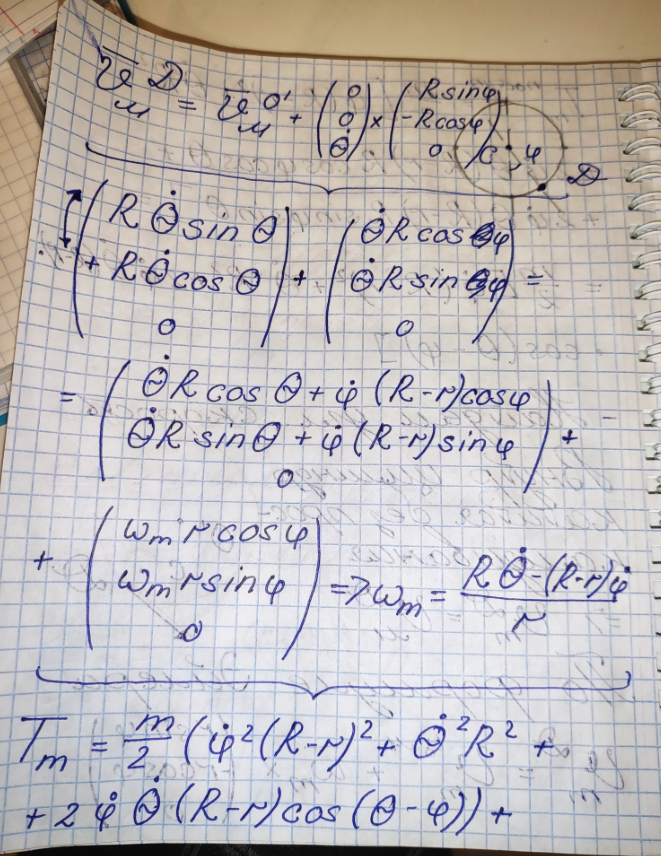 v̄_M^D = v̄_M^O' + (0 0 θ̇) × (R sin φ -R cos φ 0) C φ D
(R θ̇ sin θ + R θ̇ cos θ 0) + (θ̇ R cos φ θ̇ R sin φ 0) =
= (θ̇ R cos θ + φ̇ (R-r) cos φ θ̇ R sin θ + φ̇ (R-r) sin φ 0) +
+ (ω_m r cos φ ω_m r sin φ 0) => ω_m = (R θ̇ - (R-r) φ̇) / r
T_m = m/2 (φ̇² (R-r)² + θ̇² R² +
+ 2 φ̇ θ̇ (R-r) cos (θ - φ)) +